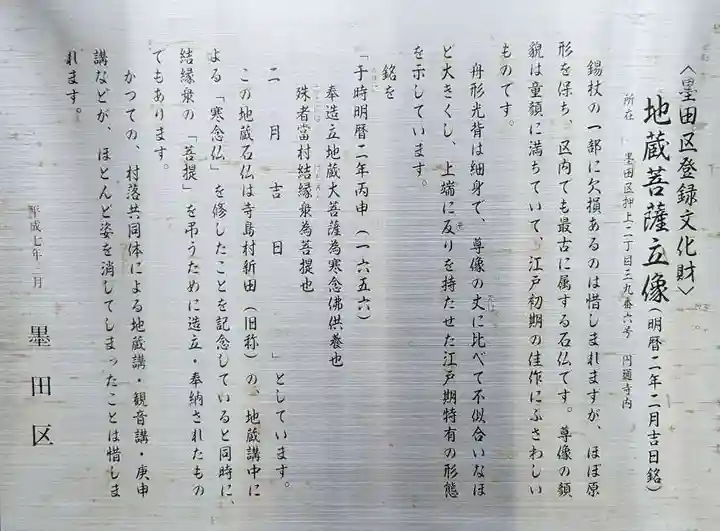 〈墨田区登録文化財〉
地蔵菩薩立像(明暦二年二月吉日銘)
所在 墨田区押上二丁目三九番六号 円通寺内
錫杖の一部に欠損あるのは惜しまれますが、ほぼ原
形を保ち、区内でも最古に属する石仏です。尊像の顔
貌は童顔に満ちていて、江戸初期の佳作にふさわしい
ものです。
舟形光背は細身で、尊像の丈に比べて不似合いなほ
ど大きくし、上端に反りを持たせた江戸期特有の形態
を示しています。
銘を
「于時明暦二年丙申(一六五六)
奉造立地蔵大菩薩為寒念佛供養也
殊者當村結縁衆為菩提也
二月吉日 」としています。
この地蔵石仏は寺島村新田(旧称)の、地蔵講中に
よる「寒念仏」を修したことを記念していると同時に、
結縁衆の「菩提」を弔うために造立・奉納されたもの
でもあります。
かつての、村落共同体による地蔵講・観音講・庚申
講などが、ほとんど姿を消してしまったことは惜しま
れます。
平成七年二月
墨田区